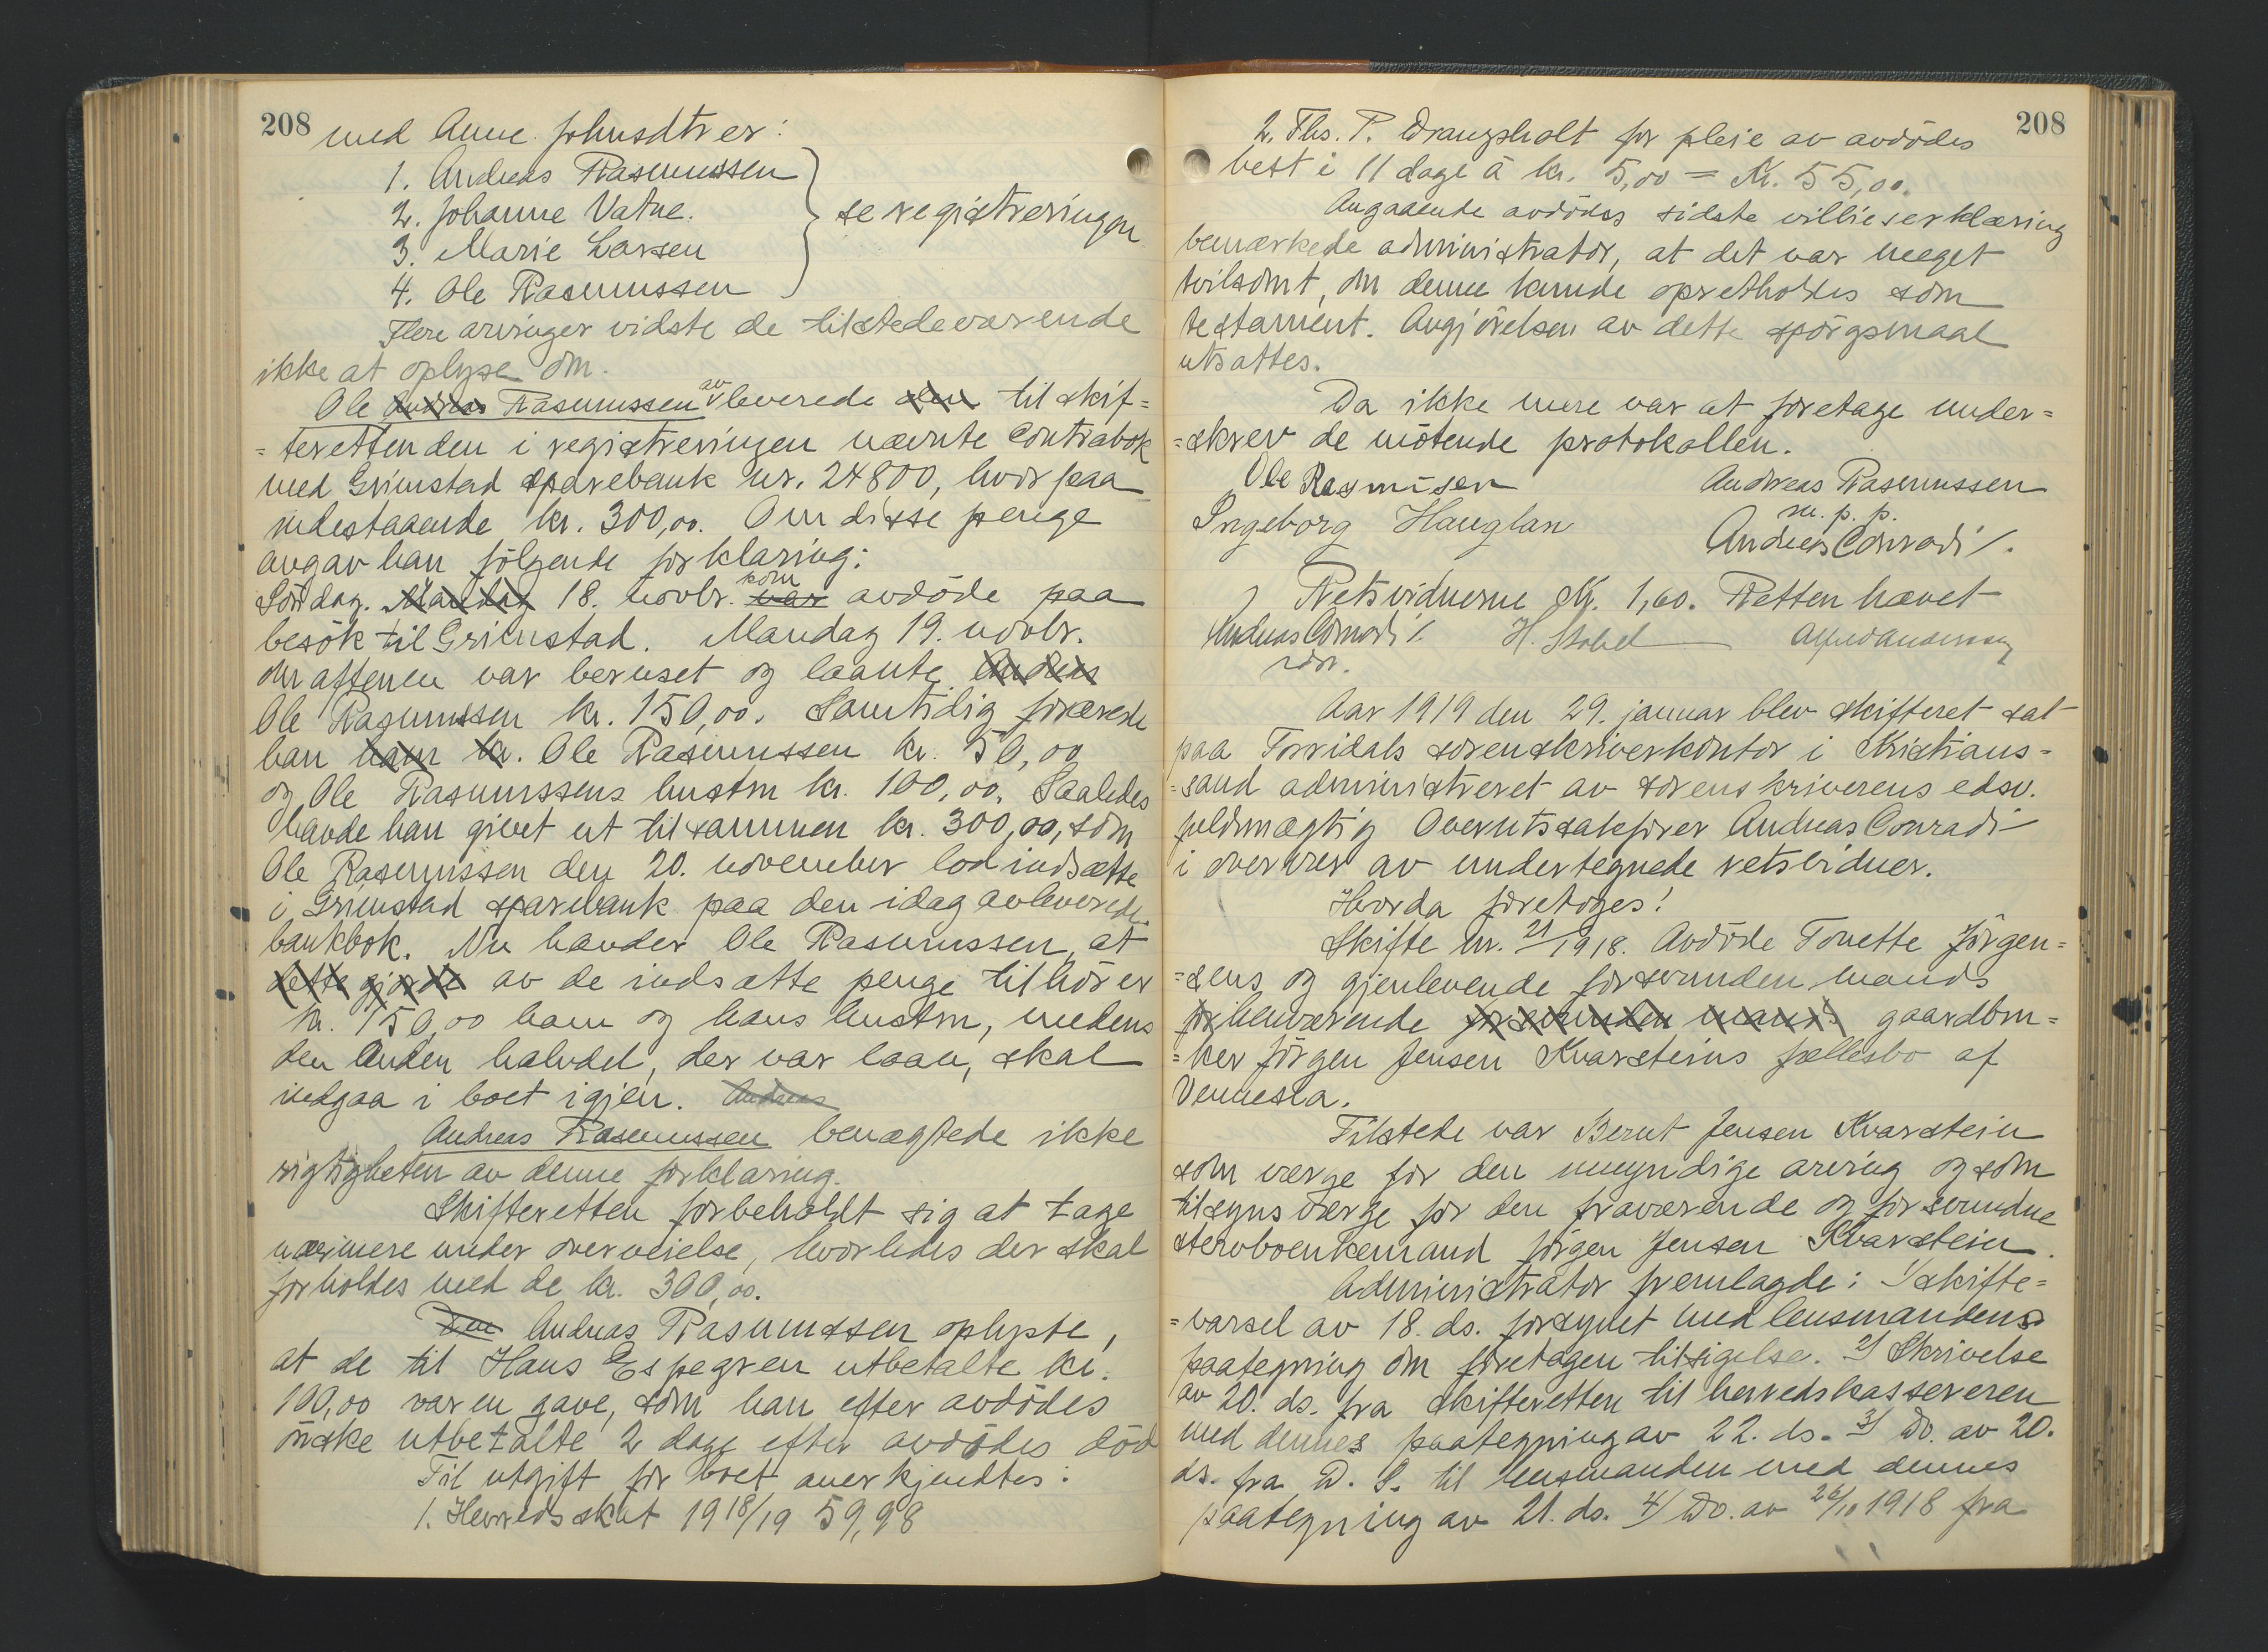 208
med Anne Johnsdtr er:
1. Andreas Rasmussen
2. Johanne Vatne.
3. Marie Larsen
4. Ole Rasmussen
se registreringen
Flere arvinger vidste de tilstedeværende
ikke at oplyse om.
Ole Andreas Rasmussen avleverede den til skif=
=teretten den i registreringen nævnte contrabok
med Grimstad sparebank nr. 24800, hvor paa
indestaaende kr. 300,00. Om disse penge
avgav han følgende forklaring:
Søndag. Mandag 18. novbr. var kom avdøde paa
besøk til Grimstad. Mandag 19. novbr.
om aftenen var beruset og laante Andreas
Ole Rasmussen kr. 150,00. Samtidig forærede
han ham kr. Ole Rasmussen kr. 50,00
og Ole Rasmussens hustru kr. 100,00. Saaledes
havde han givet ut tilsammen kr. 300,00, som
Ole Rasmussen den 20. november lod indsætte
i Grimstad sparebank paa den idag avleverede
bankbok. Nu hævder Ole Rasmussen, at
dette gjorde av de indsatte penge tilhører
kr. 150,00 ham og hans hustru, medens
den anden halvdel, der var laan, skal
indgaa i boet igjen. Andreas
Andreas Rasmussen benægtede ikke
rigtigheten av denne forklaring.
Skifteretten forbeholdt sig at tage
nærmere under overveielse, hvorledes der skal
forholdes med de kr. 300,00.
Den Andreas Rasmussen oplyste,
at de til Hans Espegren utbetalte kr.
100,00 var en gave, som han efter avdødes
ønske utbetalte 2 dage efter avdødes død
Til utgift for boet anerkjendtes:
1. Herredsskat 1918/19 59,98
208
2. Ths. P. Drangsholt for pleie av avdødes
hest i 11 dage à kr. 5,00 = Kr. 55,00.
Angaaende avdødes sidste villieserklæring
bemærkede administrator, at det var meget
tvilsomt, om denne kunde opretholdes som
testament. Avgjørelsen av dette spørgsmaal
utsattes.
Da ikke mere var at foretage under=
=skrev de møtende protokollen.
Ole Rasmisen
Andreas Rasmussen
m. p. p.
Ingeborg Hauglan
Andreas Conradi /.
Retsvidnerne Kr. 1,60. Retten hævet
Andreas Conradi /. H. Stobel Alfred Andersen
Aar 1919 den 29. januar blev skifteret sat
paa Torridals sorenskriverkontor i Kristians=
=sand administreret av sorenskriverens edsv.
fuldmægtig Overretssakfører Andreas Conradi
i overvær av undertegnede retsvidner.
Hvorda foretoges!
Skifte nr. 21/1918. Avdøde Tonette Jørgen=
=sens og gjenlevende forsvunden mands
forhenværende forsvunden mands gaardbru=
=ker Jørgen Jensen Kvarsteins fællesbo af
Vennesla.
Tilstede var Bernt Jensen Kvarstein
som verge for den umyndige arving og som
tilsynsverge for den fraværende og forsvundne
stervboenkemand Jørgen Jensen Kvarstein.
Administrator fremlagde: 1/ skifte=
=varsel av 18. ds. forsynet med lensmandens
paategning om foretagen tilsigelse. 2/ Skrivelse
av 20. ds. fra skifteretten til herredskassereren
med dennes paategning av 22. ds. 3/ Do. av 20.
ds. fra D. S. til lensmanden med dennes
paategning av 21. ds. 4/ Do. av 26/10 1918 fra